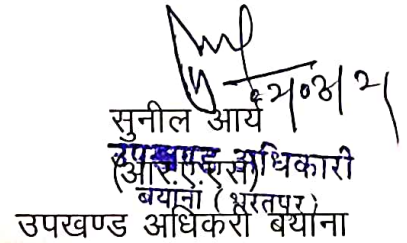 सुनील आर्य
उपखण्ड अधिकारी
(आर.ए.एस)
बयाना (भरतपुर)
उपखण्ड अधिकरी बयाना